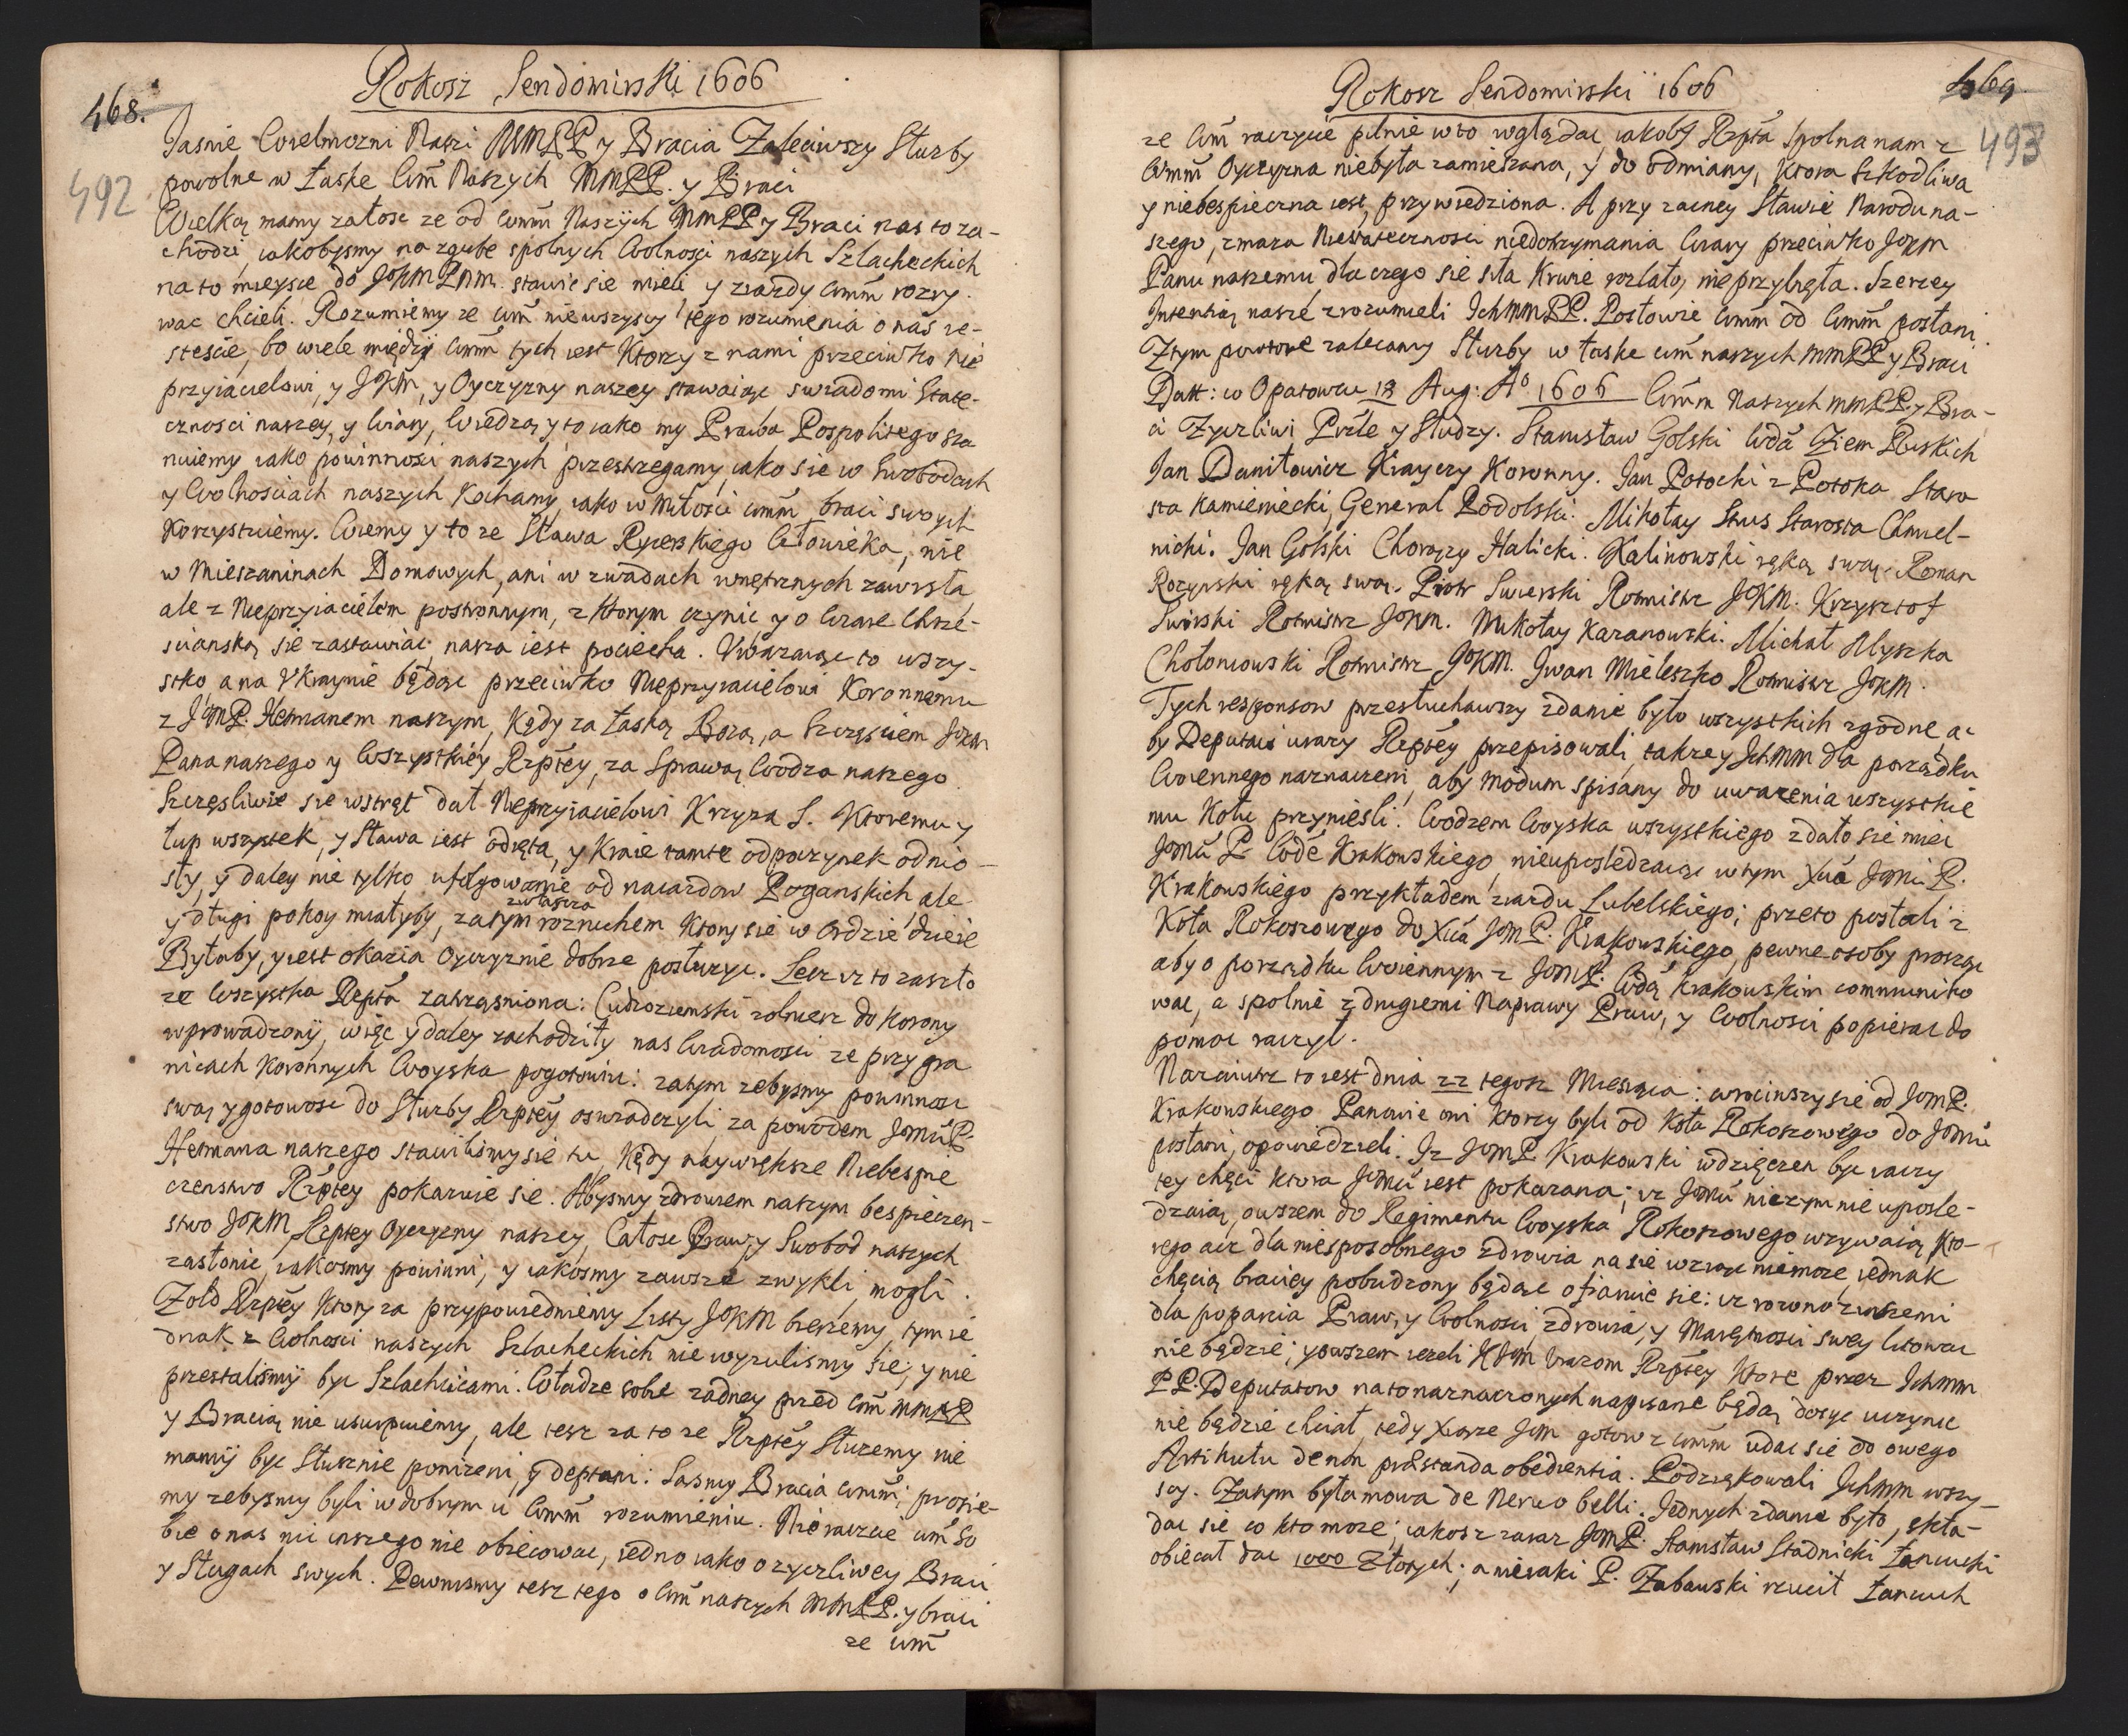 Rokosz Sendomirski 1606
468.
492
Jasnie Wielmozni Naszi MMPP y Bracia Zaleciwszy Służby
powolne w Łaskę Wm̃ Naszych MMPP. y Braci
Wielką mamy załosc ze od Wmm̃ Naszych MMPP y Braci nas to za-
chodzi, iakobysmy na zgubę spolnych Wolnosci naszych Szlacheckich
na to mieysce do JoKM PNM. stawic sie mieli y ziazdy Wmm̃ rozry-
wac chcieli. Rozumiemy ze Wm̃ nie wszyscy tego rozumienia o nas ie-
stescie, bo wiele między Wmm̃ tych iest Ktorzy z nami przeciwko Nie
przyiacielowi, y JKM, y Oyczyzny naszey stawaiąc swiadomi State-
cznosci naszey, y Wiary, Wiedzą y to iako my Prawa Pospolitego sza
nuiemy iako powinnosci naszych przestrzegamy, iako sie w Swobodach
y Wolnosciach naszych Kochamy, iako w Miłosci Wmm̃ braci swoych
Korzystuiemy. Wiemy y to ze Sława Rycerskiego Człowieka, nie
w Mieszaninach Domowych, ani w zwadach wnętrznych zawisła
ale z Nieprzyiacielem postronnym, z Ktorym czynic y o Wiarę Chrze-
scianską sie zastawiac, nasza iest pociecha. Uwazaiąc to wszy-
stko, a na Ukraynie będąc przeciwko Nieprzyiacielowi Koronnemu
z JMP. Hetmanem naszym, Kędy za łaską Bozą, a Szczęsciem JoKM
Pana naszego y Wszystkiey Rzptey, za Sprawą Wodza naszego
Szczęsliwie sie wstręt dał Nieprzyiacielowi Krzyza S. Ktoremu y
łup wszystek, y Sława iest odięta, y Kraie tamte odpoczynek odnio-
sły, y daley nie tylko ufolgowanie od naiazdow Poganskich ale
y długi pokoy miałyby, zatym zwłascza rozruchem Ktory sie w Ordzie dzieie
Byłaby, y iest okazia Oyczyznie dobrze posłuzyc. Lecz iz to zaszło
ze Wszystka Rzpta zatrząsniona: Cudzoziemski zolnierz do Korony
wprowadzony, więc y daley zachodziły nas Wiadomosci ze przy gra
nicach Koronnych Woyska pogotowiu: zatym zebysmy powinnosc
swą y gotowosc do Słuzby Rzptey oswiadczyli, za powodem JoMci P.
Hetmana naszego stawilismy sie tu, Kędy naywiększe Niebespie
czenstwo Rzptey pokazuie sie. Abysmy zdrowiem naszym bespieczen-
stwo JoKM, Rzptey Oyczyzny naszey, Całosc Praw, y Swobod naszych
zasłonic, iakosmy powinni, y iakosmy zawsze zwykli, mogli.
Zołd Rzptey Ktory za przypowiednięmy Listy JoKM bierzemy, tym ie
dnak z Wolnosci naszych Szlacheckich nie wyzulismy sie, y nie
przestalismy byc Szlachcicami. Władze sobie zadney przed Wm̃ MMPP
y Bracią nie usurpuiemy, ale tesz za to ze Rzptey Słuzemy nie
mamy byc Słusznie ponizeni, y deptani: Sasmy Bracia Wmm̃; prosie-
my zebysmy byli w dobrym u Wmm̃ rozumieniu. Nie raczcie Wm̃ So
bie o nas nic inszego nie obiecowac, iedno iako o zyczliwey Braci
y Sługach swych. Pewnismy tesz tego o Wm̃ naszych MMPP. y braci
ze Wm̃
Rokosz Sendomirski 1606
469.
493
ze Wm̃ raczycie pilnie w to wglądac, iakoby Rzpta spolna nam z
Wmm̃ Oyczyzna niebyła zamieszana, y do odmiany, Ktora Szkodliwa
y niebespieczna iest, przywiedziona. A przy zacney Sławie Narodu na-
szego, zmaza Niestatecznosci niedotrzymania Wiary przeciwko JoKM
Panu naszemu dla czego sie siła Krwie rozlało, nie przylnęła. Szerzey
Intentią naszę zrozumieli IchMMPP. Posłowie Wmm̃ od Wmm̃ posłani.
Ztym powtore zalecamy Słuzby w łaskę Wm̃ naszych MMPP y Braci
Datt: w Opatowcu 18 Aug: A° 1606 Wmm̃ Naszych MMPP. y Bra-
ci Zyczliwi Przle y Słudzy. Stanisław Golski Wda Ziem Ruskich
Jan Daniłowicz Krayczy Koronny. Jan Potocki z Potoka Staro
sta Kamieniecki, General Podolski. Mikołay Strus Starosta Chmiel-
nicki. Jan Golski Chorązy Halicki. Kalinowski ręką swą. Roman
Rozynski ręką swą. Piotr Swierski Rotmistrz JoKM. Krzysztof
Swirski Rotmistrz JoKM. Mikołay Karanowski. Michał Myszka
Chołoniowski Rotmistrz JoKM. Iwan Mieleszko Rotmistrz JoKM.
Tych responsow przesłuchawszy zdanie było wszystkich zgodne, a-
by Deputaci urazy Rzptey przepisowali, takze y IchMM dla porządku
Woiennego naznaczeni, aby modum spisany do uwazenia wszystkie
mu Kołu przyniesli. Wodzem Woyska wszystkiego zdało sie miec
JoMci P. Wdę Krakowskiego, nieuposledzaiąc w tym Xcia JoMci P.
Krakowskiego przykładem ziazdu Lubelskiego; przeto posłali z
Koła Rokoszowego do Xcia JoMP. Krakowskiego, pewne osoby prosząc
aby o porządku Woiennym z JoMP. Wdą Krakowskim communiko
wac, a spolnie z drugiemi Naprawy Praw, y Wolnosci popierac do
pomoc raczył.
Nazaiutrz to iest dnia 22 tegosz Miesiąca: wrociwszy sie od JoMP.
Krakowskiego Panowie oni Ktorzy byli od Koła Rokoszowego do JoMci
posłani, opowiedzieli. Iz JoMP. Krakowski wdzięczen byc raczy
tey chęci Ktora JoMci iest pokazana; iz JoMci niczym nie uposle-
dzaią, owszem do Regimentu Woyska Rokoszowego wzywaią, Kto-
rego acz dla niesposobnego zdrowia na sie wziąc niemoze, iednak
chęcią braciey pobudzony będąc ofiaruie sie: iz rowno z inszemi
dla poparcia Praw, y Wolnosci, zdrowia, y Maiętnosci swey litowac
nie będzie; y owszem iezeli KJM Urazom Rzptey Ktore przez IchMM
PP. Deputatow na to naznaczonych napisane będą dosyc uczynic
nie będzie chciał, tedy Xiąze JoM gotow z Wmm̃ udac sie do owego
Artikułu de non præstanda obedientia. Podziękowali IchMM wszy-
scy. Zatym była mowa de Nervo belli. Jednych zdanie było, skła-
dac sie co kto moze; iakosz zaraz JoMP. Stanisław Stadnicki Łancucki
obiecał dac 1000 Złotych; a nieiaki P. Zabawski rzucił Łancuch